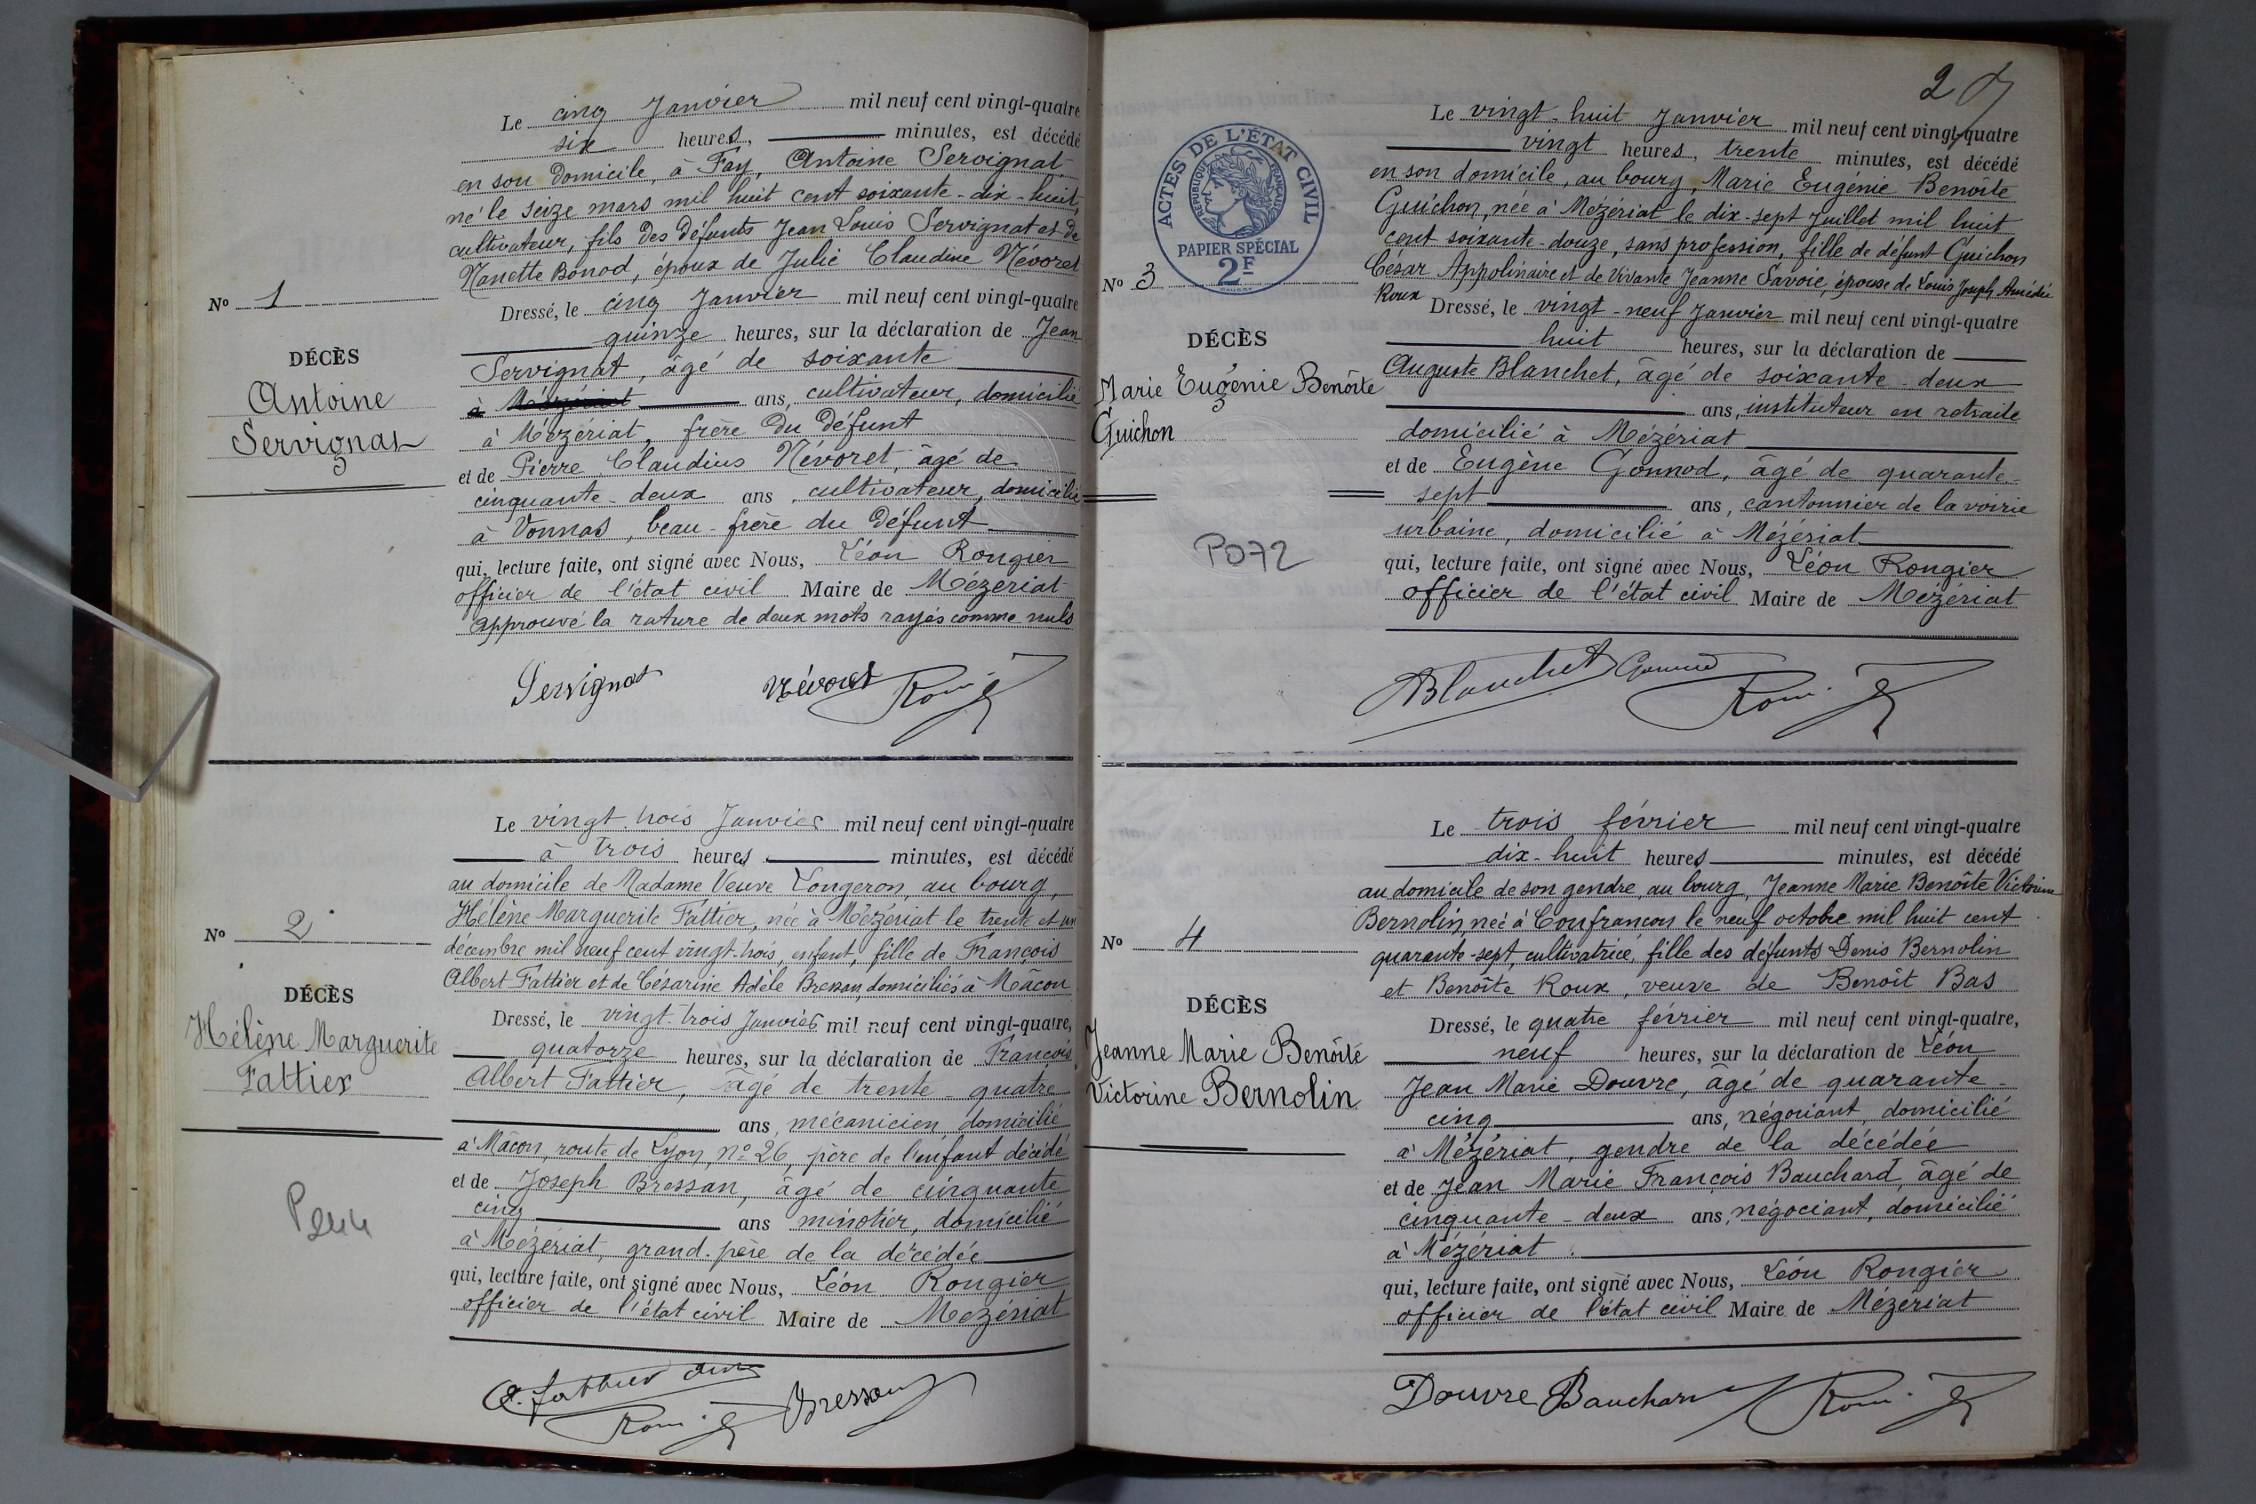 Le cinq Janvier mil neuf cent vingt-quatre
six heures, minutes, est décédé
en son domicile, à Fay, Antoine Servignat
né le seize mars mil huit cent soixante-dix-huit,
cultivateur, fils des défunts Jean Louis Servignat et de
Nanette Bonod, époux de Julie Claudine Névoret
Nº 1
DÉCÈS
Antoine
Servignat
Dressé, le cinq Janvier mil neuf cent vingt-quatre
quinze heures, sur la déclaration de Jean
Servignat, âgé de soixante
à Mézériat ans, cultivateur, domicilié
à Mézériat, frère du défunt
et de Pierre Claudius Névoret, âgé de
cinquante-deux ans, cultivateur, domicilié
à Vonnas, beau-frère du défunt
qui, lecture faite, ont signé avec Nous, Léon Rongier
officier de l'état civil Maire de Mézériat
Approuvé la rature de deux mots rayés comme nuls
Servignat Névoret
Le vingt-trois Janvier mil neuf cent vingt-quatre
à trois heures minutes, est décédé
au domicile de Madame Veuve Longeron, au bourg,
Hélène Marguerite Fattier, née à Mézériat le trente et un
décembre mil neuf cent vingt-trois, enfant, fille de François
Albert Fattier et de Césarine Adèle Bressan, domiciliés à Mâcon
Nº 2
DÉCÈS
Hélène Marguerite
Fattier
Dressé, le vingt-trois Janvier mil neuf cent vingt-quatre,
quatorze heures, sur la déclaration de François
Albert Fattier, âgé de trente-quatre
ans, mécanicien, domicilié
à Mâcon, route de Lyon, nº 26, père de l'enfant décédé
et de Joseph Bressan, âgé de cinquante
cinq ans minotier, domicilié
à Mézériat, grand-père de la décédée
qui, lecture faite, ont signé avec Nous, Léon Rongier
officier de l'état civil Maire de Mézériat
Bressan
2
ACTES DE L'ÉTAT CIVIL
RÉPUBLIQUE FRANÇAISE
PAPIER SPÉCIAL
2F
Le vingt-huit Janvier mil neuf cent vingt-quatre
vingt heures, trente minutes, est décédé
en son domicile, au bourg, Marie Eugénie Benoîte
Guichon, née à Mézériat le dix-sept Juillet mil huit
cent soixante-douze, sans profession, fille de défunt Guichon
César Appolinaire et de vivante Jeanne Savoie, épouse de Louis Joseph Amédée
Roux
Nº 3
DÉCÈS
Marie Eugénie Benoîte
Guichon
P072
Dressé, le vingt-neuf Janvier mil neuf cent vingt-quatre
huit heures, sur la déclaration de
Auguste Blanchet, âgé de soixante-deux
ans, instituteur en retraite
domicilié à Mézériat
et de Eugène Gonnod, âgé de quarante-
sept ans, cantonnier de la voirie
urbaine, domicilié à Mézériat
qui, lecture faite, ont signé avec Nous, Léon Rongier
officier de l'état civil Maire de Mézériat
Blanchet Gonnod
Le trois février mil neuf cent vingt-quatre
dix-huit heures minutes, est décédé
au domicile de son gendre, au bourg, Jeanne Marie Benoîte Victorine
Bernolin, née à Confrançon le neuf octobre mil huit cent
quarante-sept, cultivatrice, fille des défunts Denis Bernolin
et Benoîte Roux, veuve de Benoît Bas
Nº 4
DÉCÈS
Jeanne Marie Benoîte
Victorine Bernolin
Dressé, le quatre février mil neuf cent vingt-quatre,
neuf heures, sur la déclaration de Léon
Jean Marie Douvre, âgé de quarante-
cinq ans, négociant, domicilié
à Mézériat, gendre de la décédée
et de Jean Marie François Bauchard, âgé de
cinquante-deux ans, négociant, domicilié
à Mézériat.
qui, lecture faite, ont signé avec Nous, Léon Rongier
officier de l'état civil Maire de Mézériat
Douvre Bauchard